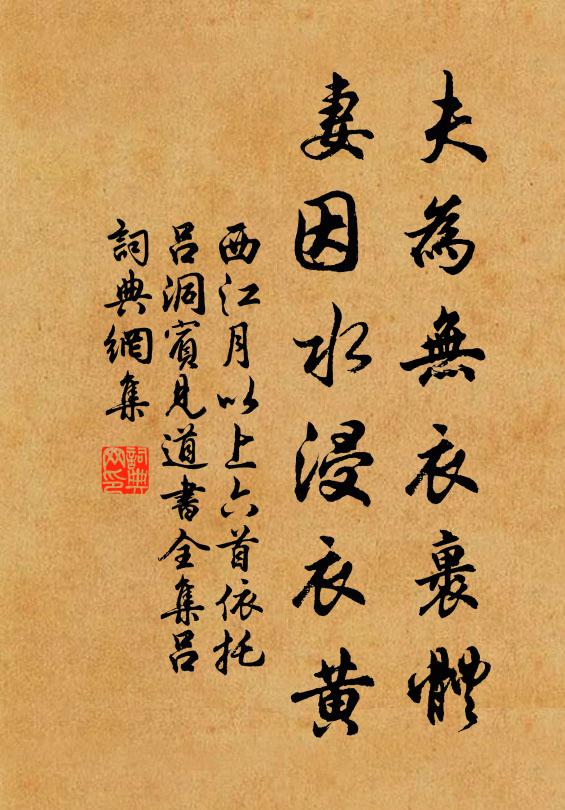 夫為無衣裹體
妻因水浸衣黄
西江月以上六首依托
呂洞賓見道書全集呂
詞典網集
詞典網印